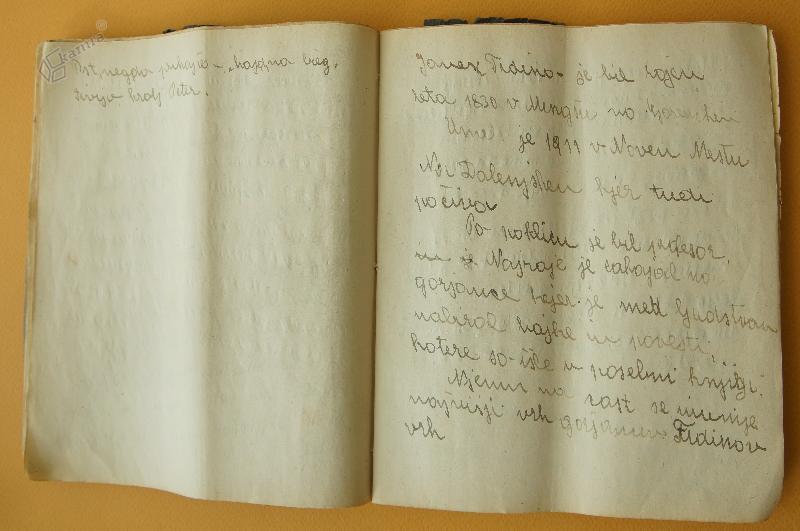 kamra
Pst, negda prihajo – hajd na breg.
živijo kralj Peter.
Janez Trdina - je bil rojen
leta 1830 v Mengšu na Gorenskem
Umrl je 1911 v Novem Mestu
Na Dolenjskem kjer tudi
počiva
Po poklicu je bil profesor,
in je Najraje je zahajal na
gorjance kjer je med ljudstvom
nabiral bajke in povesti,
katere so išle v posebni knjigi.
Njemu na čast se imenuje
najvišji vrh gorjancev Trdinov
vrh